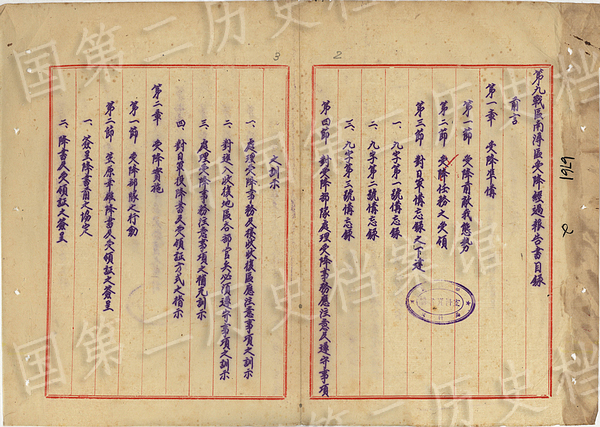 第九戰區南潯區受降經過報告書目錄
前言
第一章 受降準備
第一節 受降前敵我態勢
第二節 受降任務之受領
第三節 對日軍備忘錄之下達
一、九字第一號備忘錄
二、九字第二號備忘錄
三、九字第三號備忘錄
第四節 對受降部隊處理受降事務應注意及遵守事項
之訓示
一、處理受降事務及接收收復區應注意事項之訓示
二、對進入收復地區各部官兵必須遵守事項之訓示
三、處理受降事務注意事項之補充訓示
四、對日軍投降書及受領証方式之指示
第二章 受降實施
第一節 受降部隊之行動
第二節 笠原幸雄降書及受領証之簽呈
一、簽呈降書前之協定
二、降書及受領証之簽呈
2
3
1679
2
国第二历史档案馆